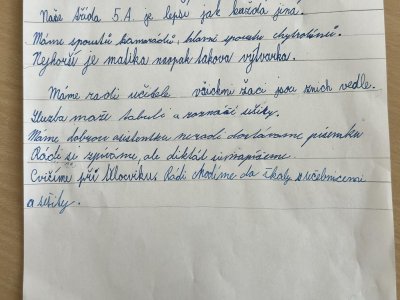 Naše třída 5.A. je lepší jak každá jiná.
Máme spoustů kamarádů, hlavně spousto chytrolínů.
Nejhorší je matika naopak takova výtvarka.
Máme radi učitele všickni žaci jsou znich vedle.
Služba maži tabuli a roznaší sešity.
Máme dobrou asistentku neradi dostáváme písemku
Rádi si zpíváme, ale diktád si napíšeme.
Cvičíme při tělocviku Rádi chodíme da školy s učebnicemi
a sešity.